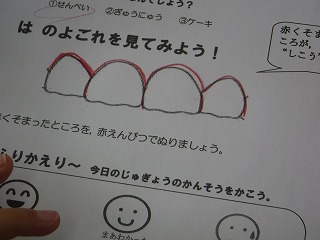 ①せんべい ②ぎゅうにゅう ③ケーキ
は のよごれを見てみよう！
赤くそま
ころが、
“しこう
くそまったところを, 赤えんぴつでぬりましょう。
ふりかえり～ 今日のじゅぎょうのかんそうをかこう。